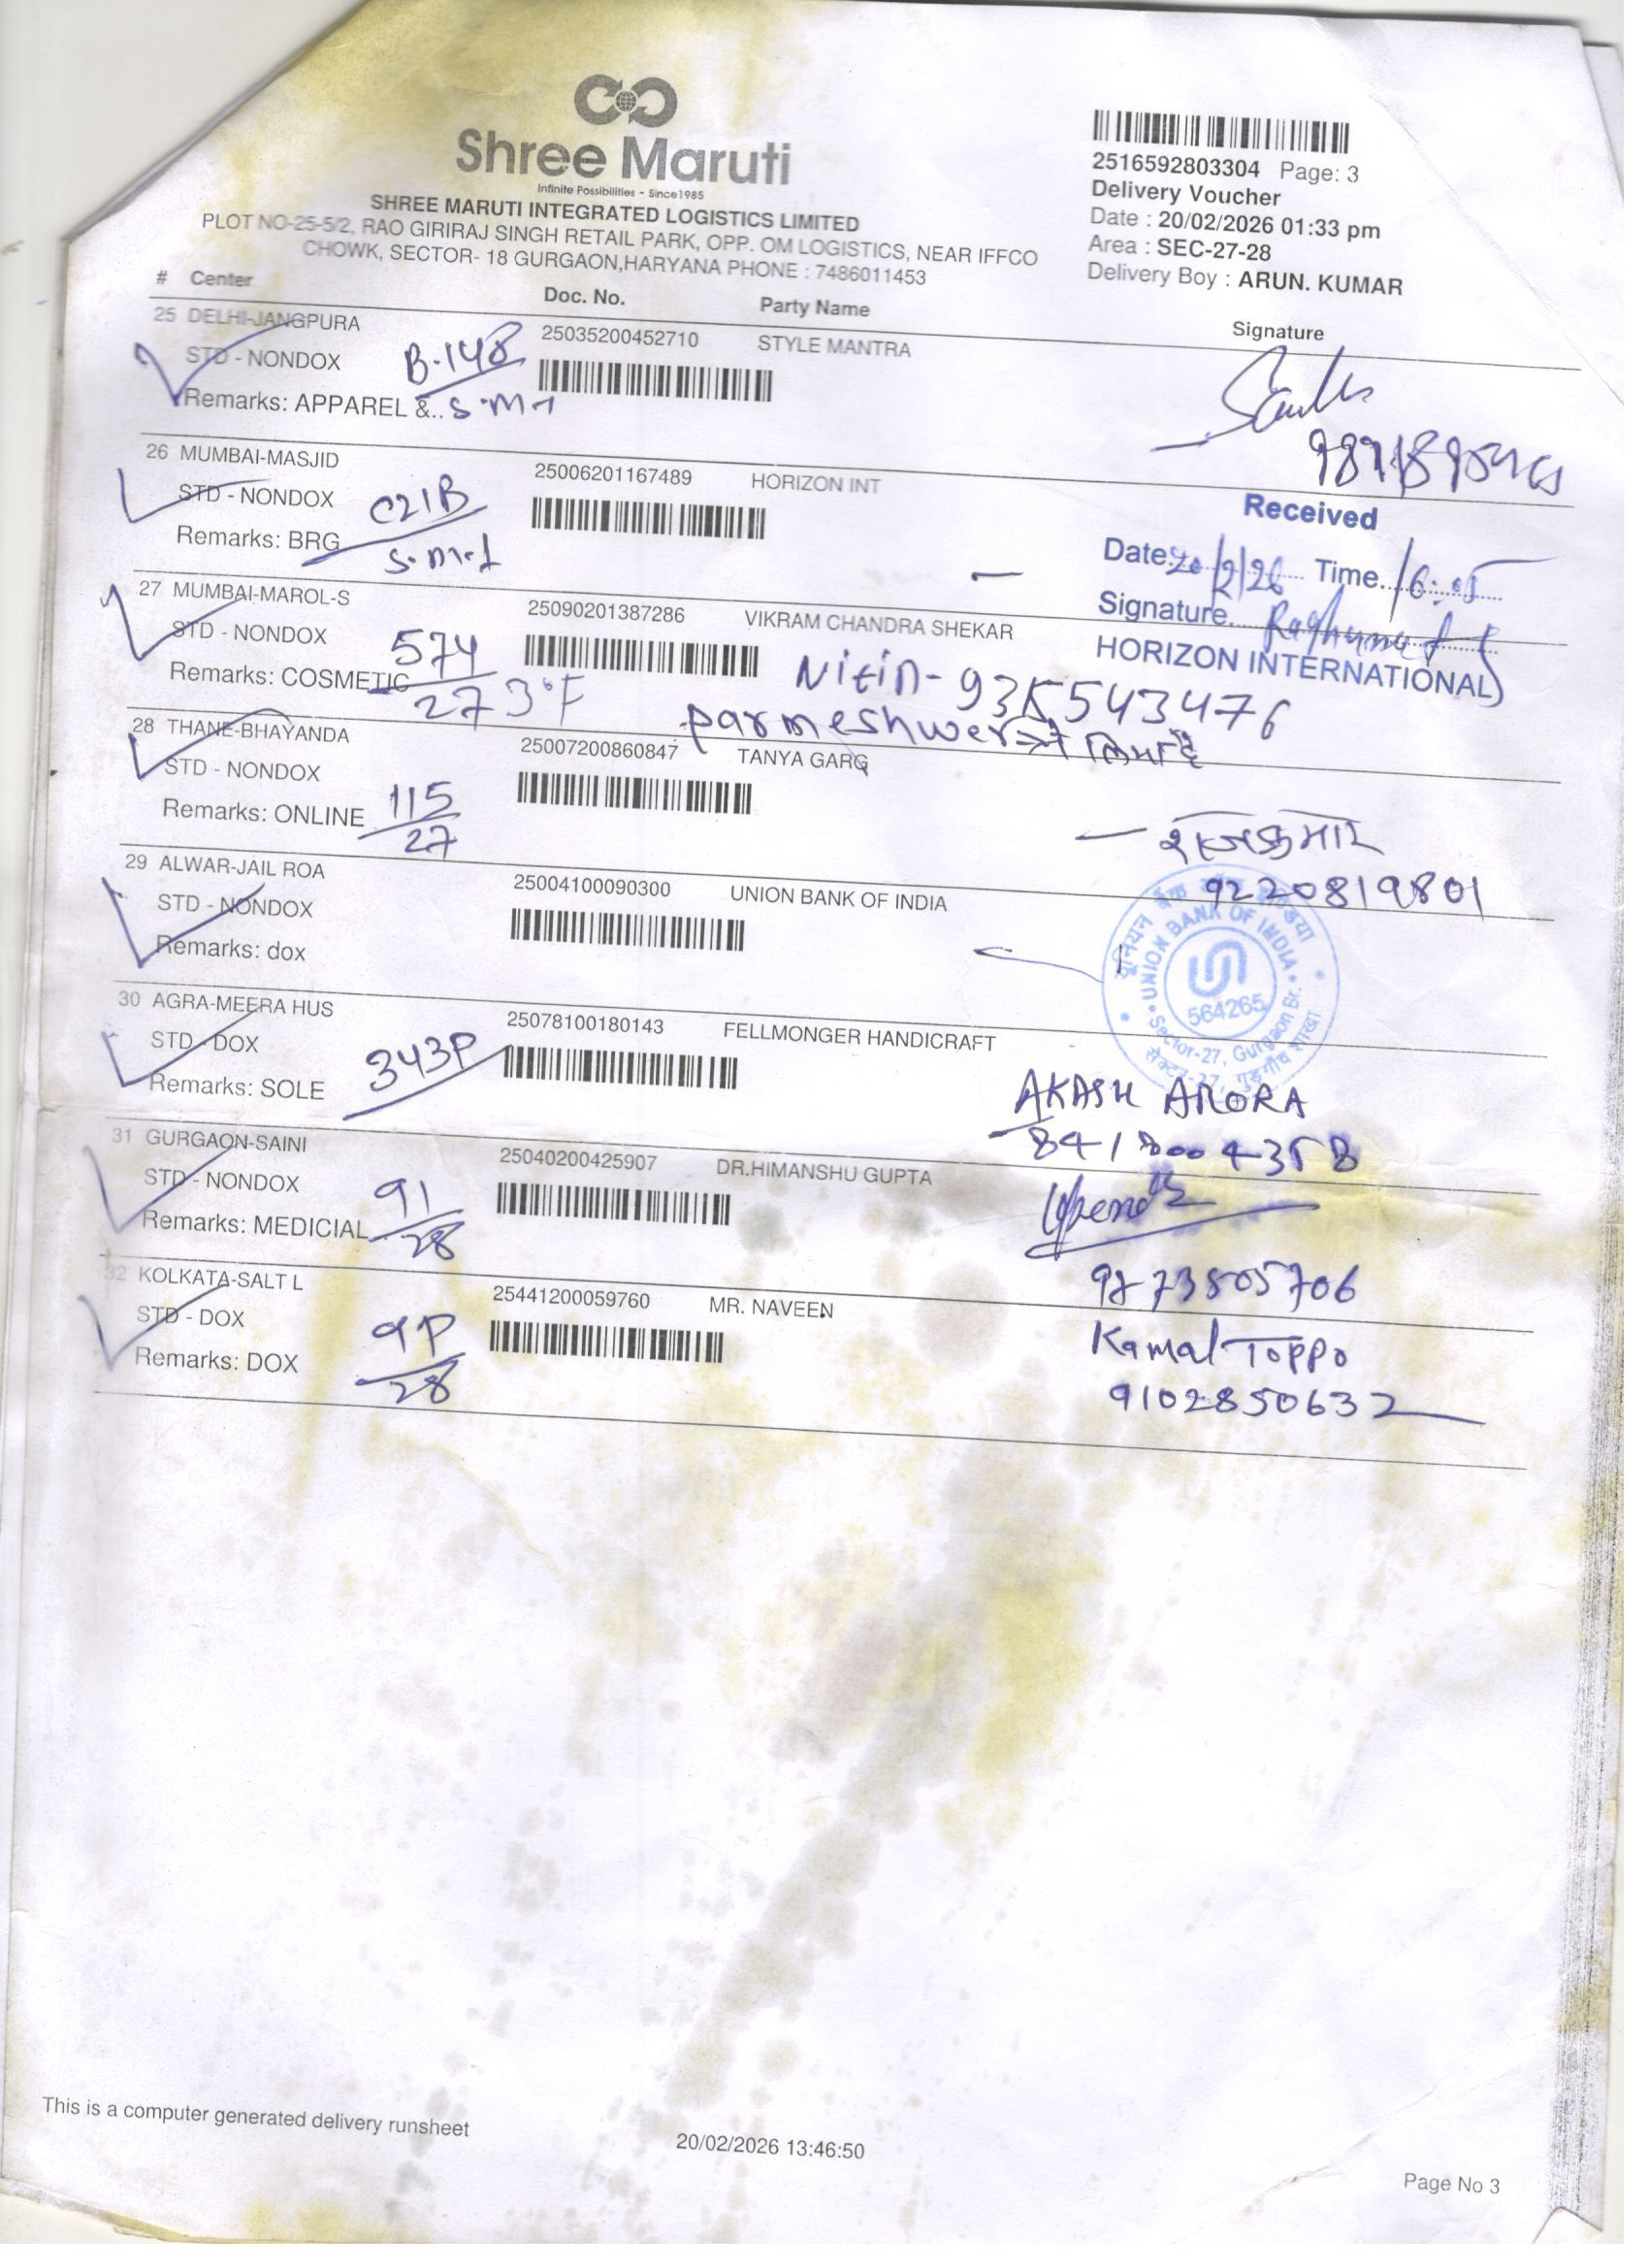 Shree Maruti
Infinite Possibilities - Since1985
SHREE MARUTI INTEGRATED LOGISTICS LIMITED
PLOT NO-25-5/2, RAO GIRIRAJ SINGH RETAIL PARK, OPP. OM LOGISTICS, NEAR IFFCO
CHOWK, SECTOR- 18 GURGAON,HARYANA PHONE : 7486011453
2516592803304 Page: 3
Delivery Voucher
Date : 20/02/2026 01:33 pm
Area : SEC-27-28
Delivery Boy : ARUN. KUMAR
# Center Doc. No. Party Name Signature
25 DELHI-JANGPURA 25035200452710 STYLE MANTRA
STD - NONDOX B-148
Remarks: APPAREL &..
26 MUMBAI-MASJID 25006201167489 HORIZON INT
STD - NONDOX C21B
Remarks: BRG
Received
Date 20/2/26 Time 16:05
Signature
HORIZON INTERNATIONAL
27 MUMBAI-MAROL-S 25090201387286 VIKRAM CHANDRA SHEKAR
STD - NONDOX 574
Remarks: COSMETIC 27
Nitin - 935543476
parmeshwer
28 THANE-BHAYANDA 25007200860847 TANYA GARG
STD - NONDOX
Remarks: ONLINE 115
27
राजकुमार
9220819801
29 ALWAR-JAIL ROA 25004100090300 UNION BANK OF INDIA
STD - NONDOX
Remarks: dox
UNION BANK OF INDIA
564265
Sector-27, Gurgaon Br.
30 AGRA-MEERA HUS 25078100180143 FELLMONGER HANDICRAFT
STD - DOX 343P
Remarks: SOLE
AKASH ARORA
31 GURGAON-SAINI 25040200425907 DR.HIMANSHU GUPTA
STD - NONDOX 91
Remarks: MEDICIAL 28
32 KOLKATA-SALT L 25441200059760 MR. NAVEEN
STD - DOX 9P
Remarks: DOX 28
Kamal Toppo
9102850632
This is a computer generated delivery runsheet
20/02/2026 13:46:50
Page No 3